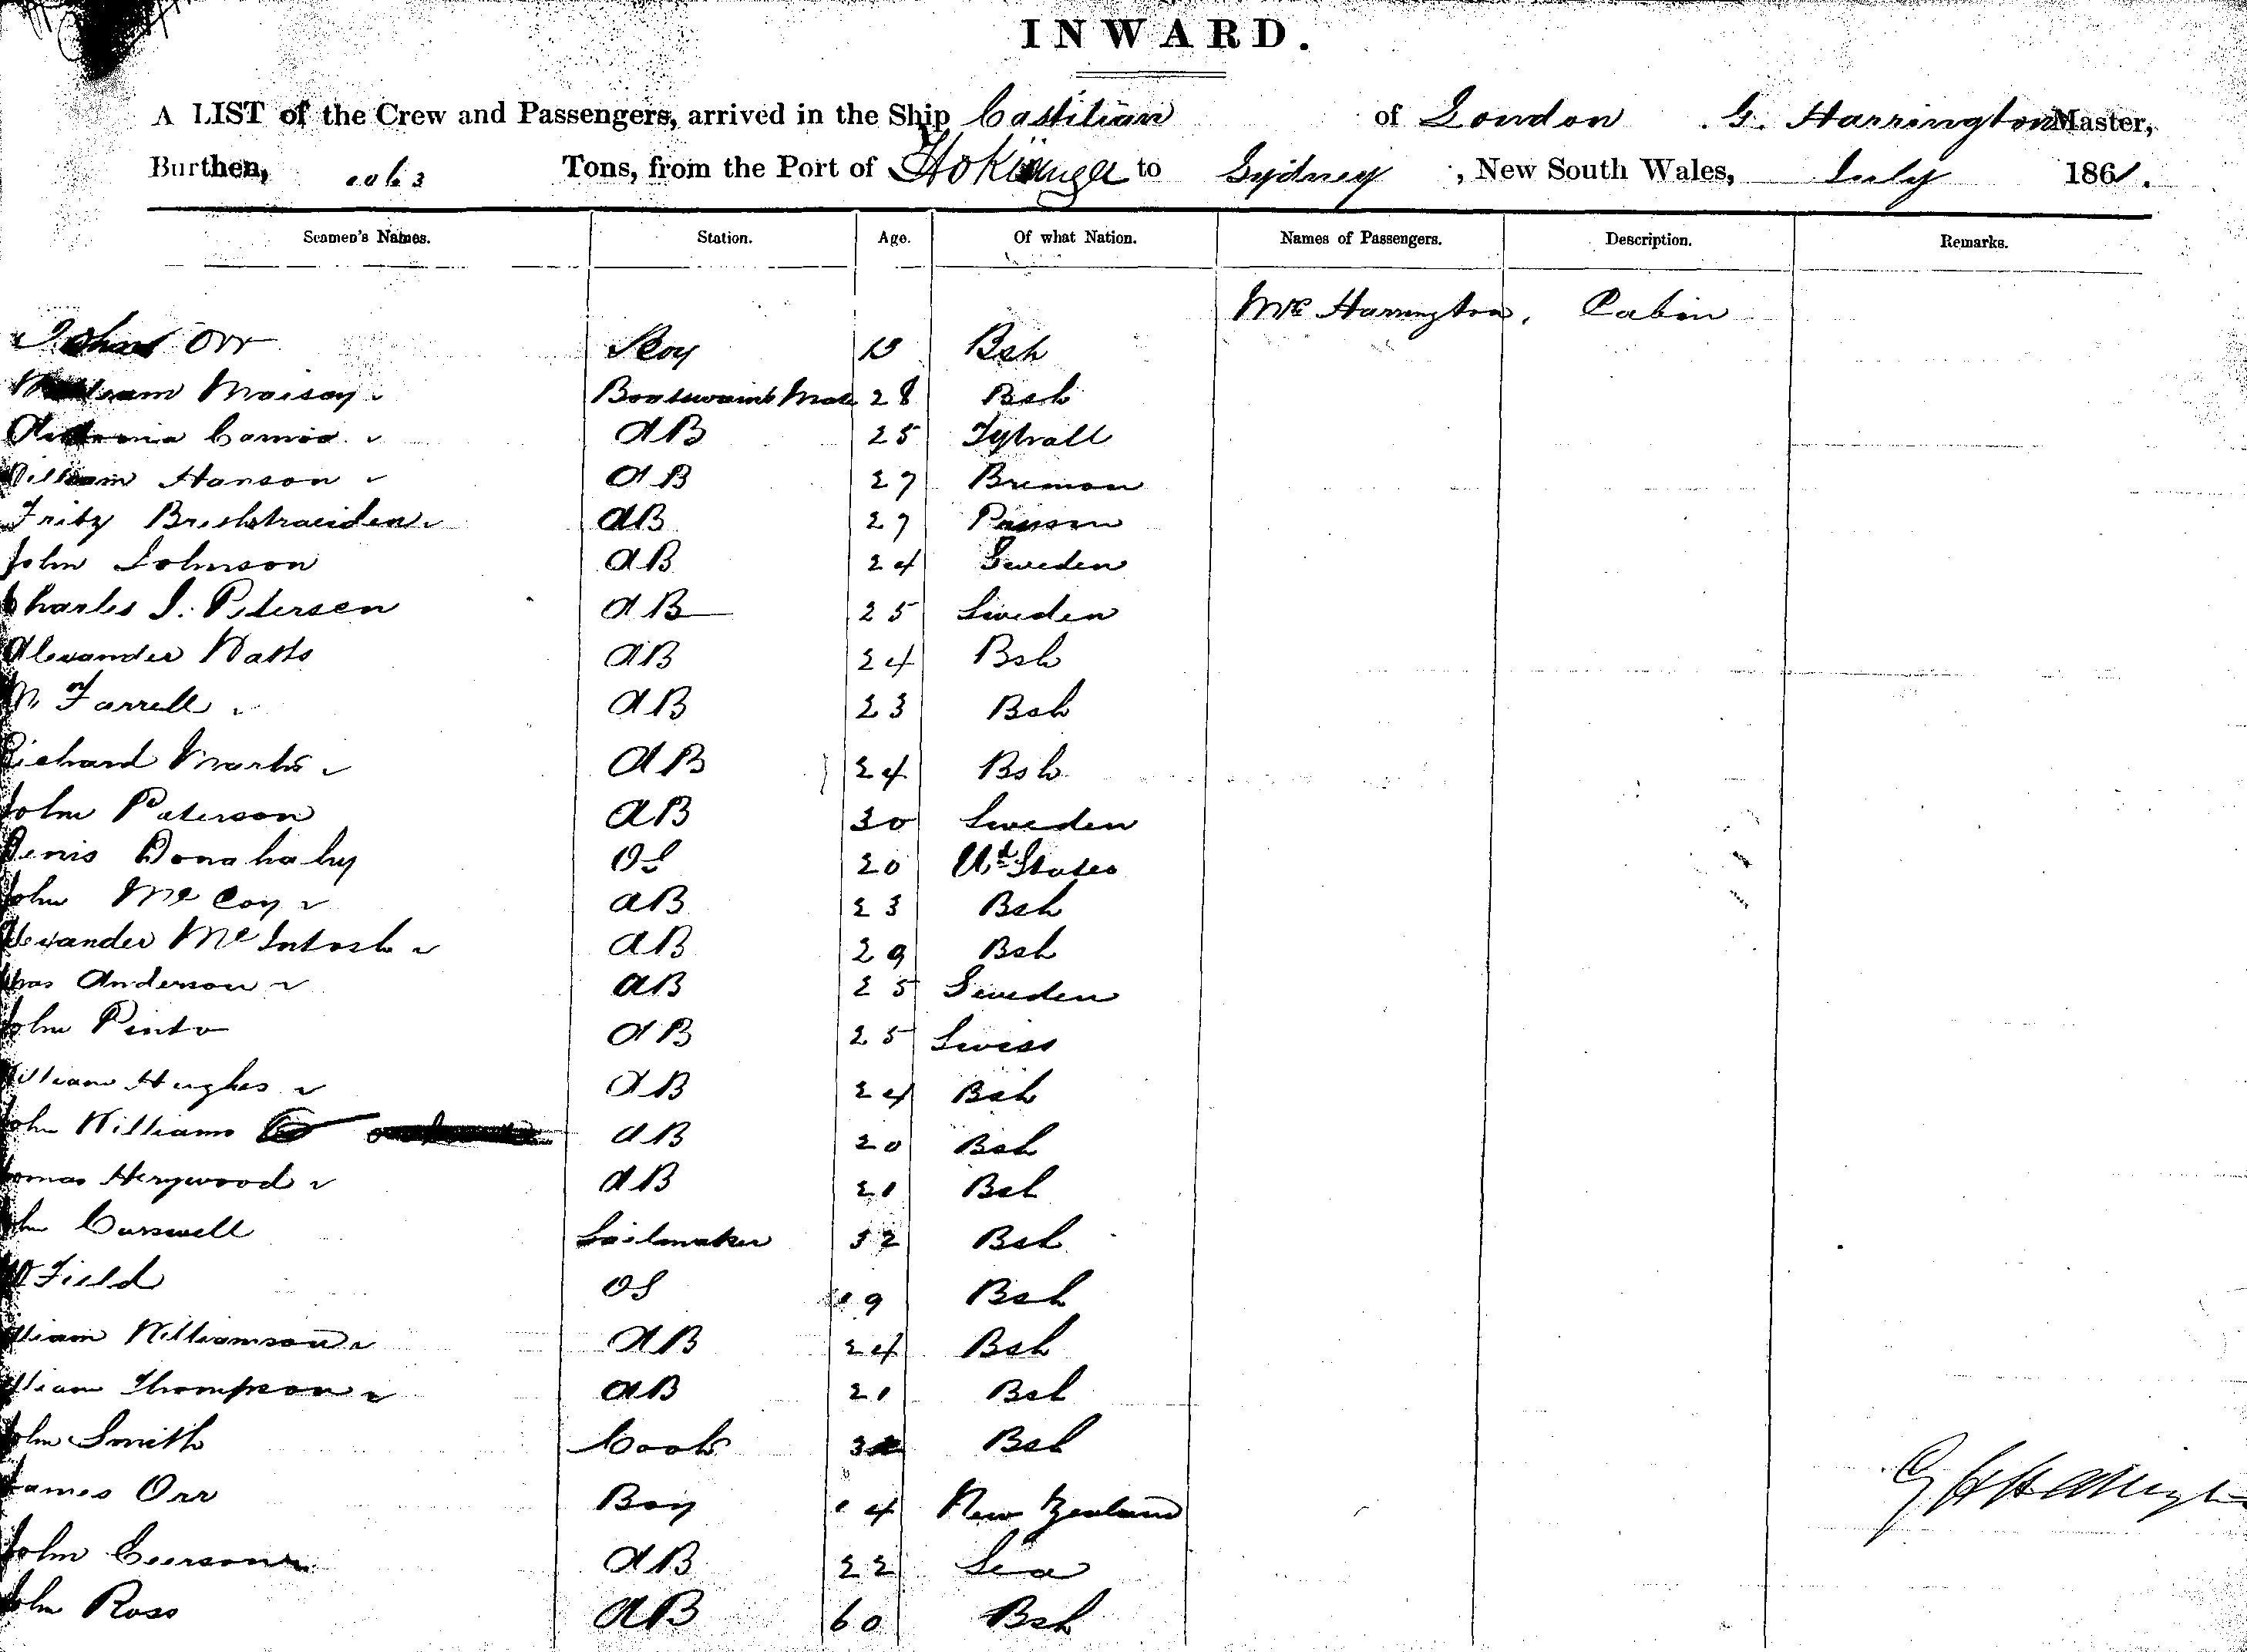 INWARD.
A LIST of the Crew and Passengers, arrived in the Ship Castilian of London G. Harrington Master,
Burthen, Tons, from the Port of Hokianga to Sydney, New South Wales, July 1861.
Seamen's Names. Station. Age. Of what Nation. Names of Passengers. Description. Remarks.
Mrs Harrington, Cabin
John Orr Boy Bsh
William Boatswains Mate 28 Bsh
AB 25
William Hanson AB 27 Bremen
Fritz AB 27
John Johnson AB 24 Sweden
Charles J. Petersen AB 25 Sweden
Alexander Watts AB 24 Bsh
M Farrell AB 23 Bsh
Richard Marks AB 24 Bsh
John Paterson AB 30 Sweden
Denis Donahahy OS 20 Ud States
John McCoy AB 23 Bsh
Alexander McIntosh AB 29 Bsh
Chas Anderson AB 25 Sweden
John Pinto AB 25 Swiss
William Hughes AB 24 Bsh
John Williams AB 20 Bsh
Thomas Herywood AB 21 Bsh
John Curswell Sailmaker 32 Bsh
W Field OS 19 Bsh
William Williamson AB 24 Bsh
William Thompson AB 21 Bsh
John Smith Cook Bsh
James Orr Boy 14 New Zealand
John AB 22 Sea
John Ross AB 60 Bsh